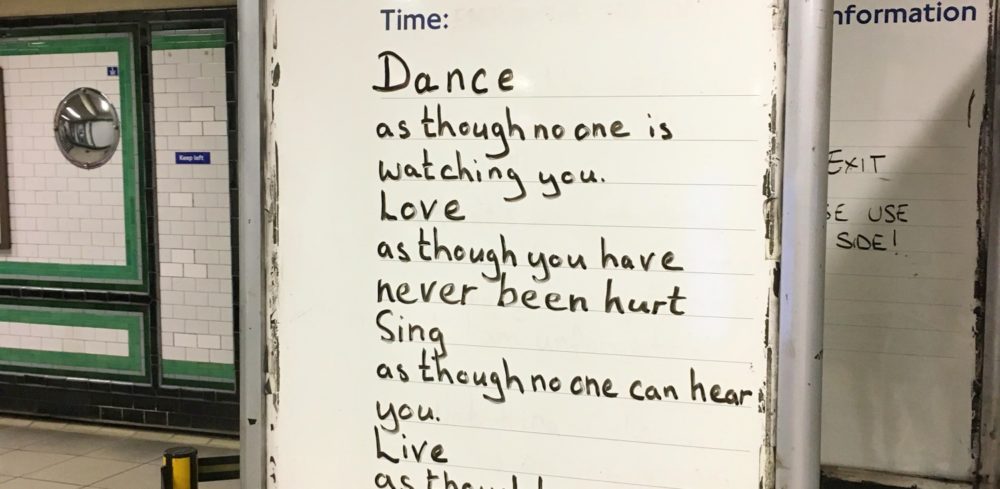 Keep left
Time:
Dance
as though no one is
watching you.
Love
as though you have
never been hurt
Sing
as though no one can hear
you.
Live
as though
nformation
EXIT
SE USE
SIDE!